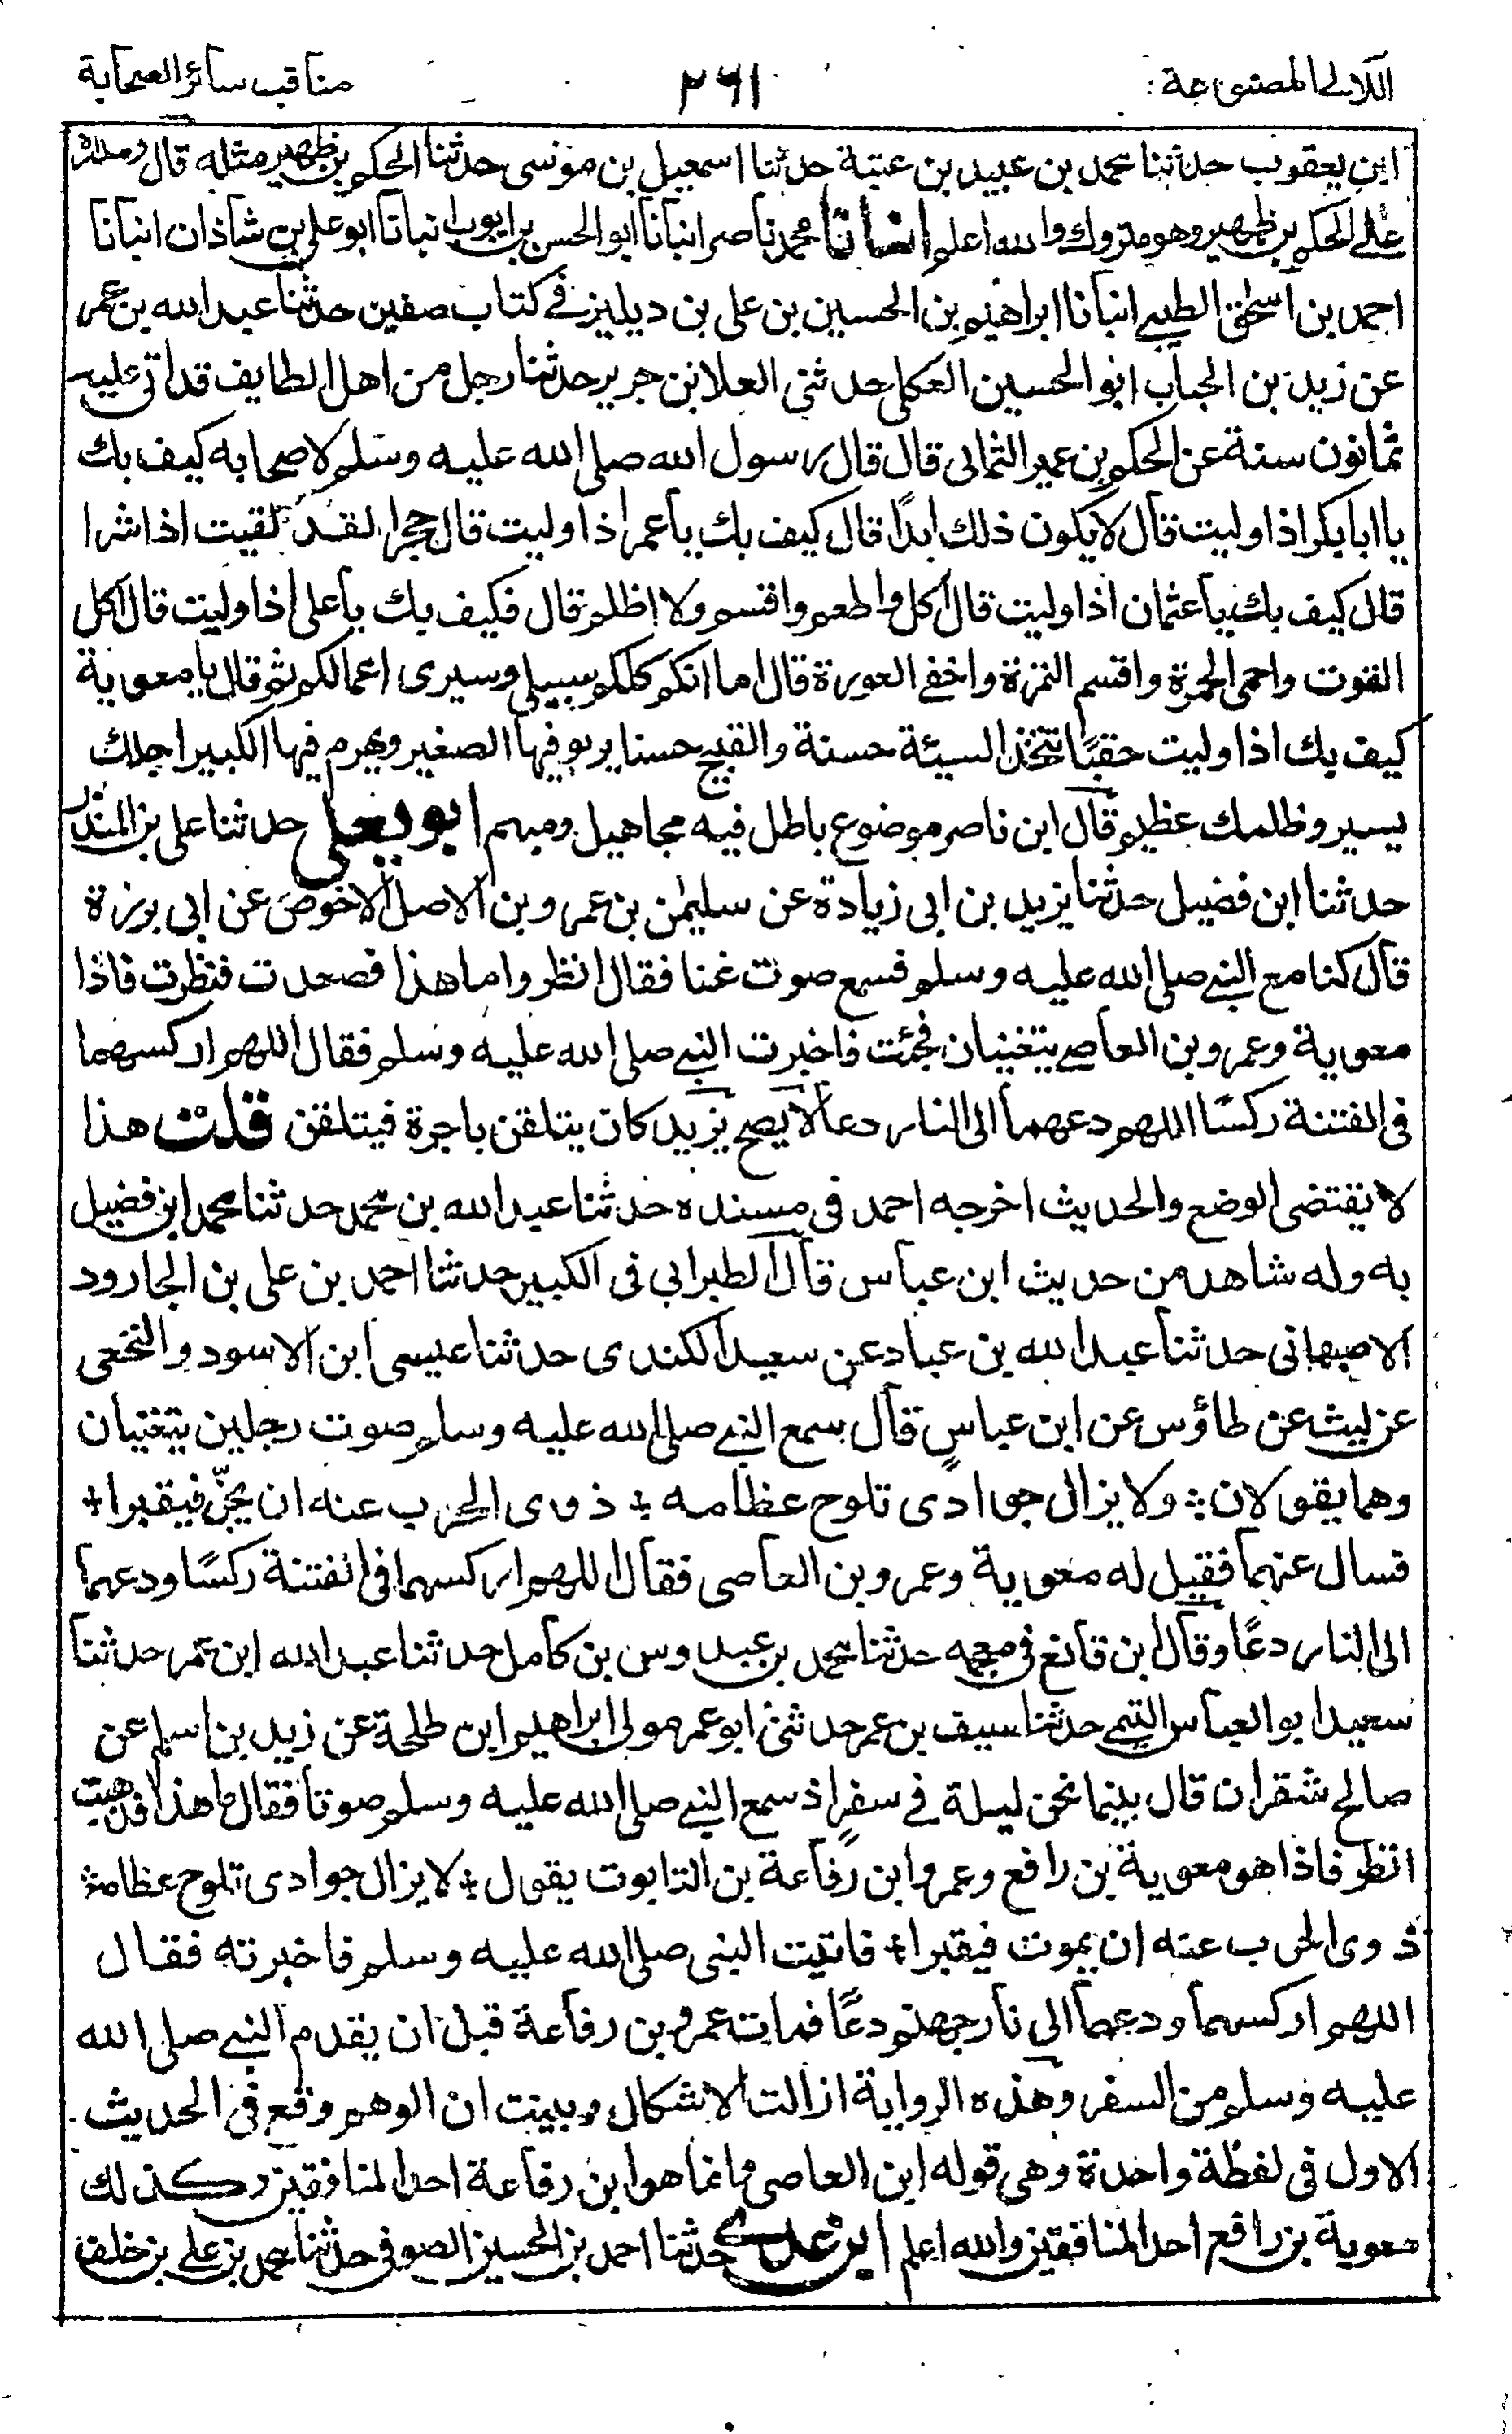 اللالى المصنوعة
٢٦١
مناقب سائر الصحابة
ابن يعقوب حدثنا محمد بن عبيد بن عتبة حدثنا اسمعيل بن موسى حدثنا الحكم بن ظهير مثله قال ومداره
على الحكم بن ظهير وهو متروك والله اعلم انبانا محمد ناصر انبانا ابو الحسن بن ايوب انبانا ابو على بن شاذان انبانا
احمد بن اسحق الطيبى انبانا ابراهيم بن الحسين بن على بن ديليز فى كتاب صفين حدثنا عبد الله بن عمر
عن زيد بن الحباب ابو الحسين العكلى حدثنى العلا بن جرير حدثنا رجل من اهل الطايف قد اتى عليه
ثمانون سنة عن الحكم بن عمير الثمالى قال قال رسول الله صلى الله عليه وسلم لاصحابه كيف بك
يا ابا بكر اذا وليت قال لا يكون ذلك ابدًا قال كيف بك يا عمر اذا وليت قال حجرا لقد لقيت اذا شرا
قال كيف بك يا عثمان اذا وليت قال اكل واطعم واقسم ولا اظلم قال فكيف بك يا على اذا وليت قال اكل
القوت واحمى الجمرة واقسم التمرة واخفى العورة قال اما انكم كلكم سيلى وسيرى اعمالكم ثم قال يا معوية
كيف بك اذا وليت حقبًا تتخذ السيئة حسنة والقبيح حسنا يربو فيها الصغير ويهرم فيها الكبير اجلك
يسير وظلمك عظيم قال ابن ناصر موضوع باطل فيه مجاهيل ومبهم ابو يعلى حدثنا على بن المنذر
حدثنا ابن فضيل حدثنا يزيد بن ابى زيادة عن سليمٰن بن عمرو بن الاصل الاخوص عن ابى برزة
قال كنا مع النبى صلى الله عليه وسلم فسمع صوت غنا فقال انظروا ما هذا فصعدت فنظرت فاذا
معوية وعمرو بن العاصى يتغنيان فجئت فاخبرت النبى صلى الله عليه وسلم فقال اللهم اركسهما
فى الفتنة ركسًا اللهم دعهما الى النار دعا لا يصح يزيد كان يتلقن باجرة فيتلقن قلت هذا
لا يقتضى الوضع والحديث اخرجه احمد فى مسنده حدثنا عبد الله بن محمد حدثنا محمد ابن فضيل
به وله شاهد من حديث ابن عباس قال الطبرابى فى الكبير حدثنا احمد بن على بن الجارود
الاصبهانى حدثنا عبد الله بن عباد عن سعيد الكندى حدثنا عيسى ابن الاسود والنخعى
عن ليث عن طاؤس عن ابن عباسٍ قال سمع النبى صلى الله عليه وسلم صوت رجلين يتغنيان
وهما يقولان ؛ ولا يزال جوادى تلوح عظامه ؛ ذوى الحرب عنه ان يجنّ فيقبرا
فسال عنهما فقيل له معوية وعمرو بن العاصى فقال اللهم اركسهما فى الفتنة ركسًا ودعهما
الى النار دعًا وقال ابن قانع فى معجمه حدثنا محمد بن عبدوس بن كامل حدثنا عبد الله ابن عمر حدثنا
سعيد ابو العباس التيمى حدثنا سيف بن عمر حدثنى ابو عمر مولى ابراهيم ابن طلحة عن زيد بن اسلم عن
صالح شقران قال بينما نحن ليلة فى سفرٍ اذ سمع النبى صلى الله عليه وسلم صوتا فقال ما هذا فذهبت
انظر فاذا هو معوية بن رافع وعمرو ابن رفاعة بن التابوت يقول ؛ لا يزال جوادى تلوح عظامه ؛
ذوى الحرب عنه ان يموت فيقبرا فاتيت النبى صلى الله عليه وسلم فاخبرته فقال
اللهم اركسهما ودعهما الى نار جهنم دعًا فمات عمرو بن رفاعة قبل ان يقدم النبى صلى الله
عليه وسلم من السفر وهذه الرواية ازالت الاشكال وبينت ان الوهم وقع فى الحديث
الاول فى لفظة واحدة وهى قوله ابن العاصى وانما هو ابن رفاعة احد المنافقين وكذلك
معوية بن رافع احد المنافقين والله اعلم ابن عدى حدثنا احمد بن الحسين الصوفى حدثنا محمد بن على بن خلف